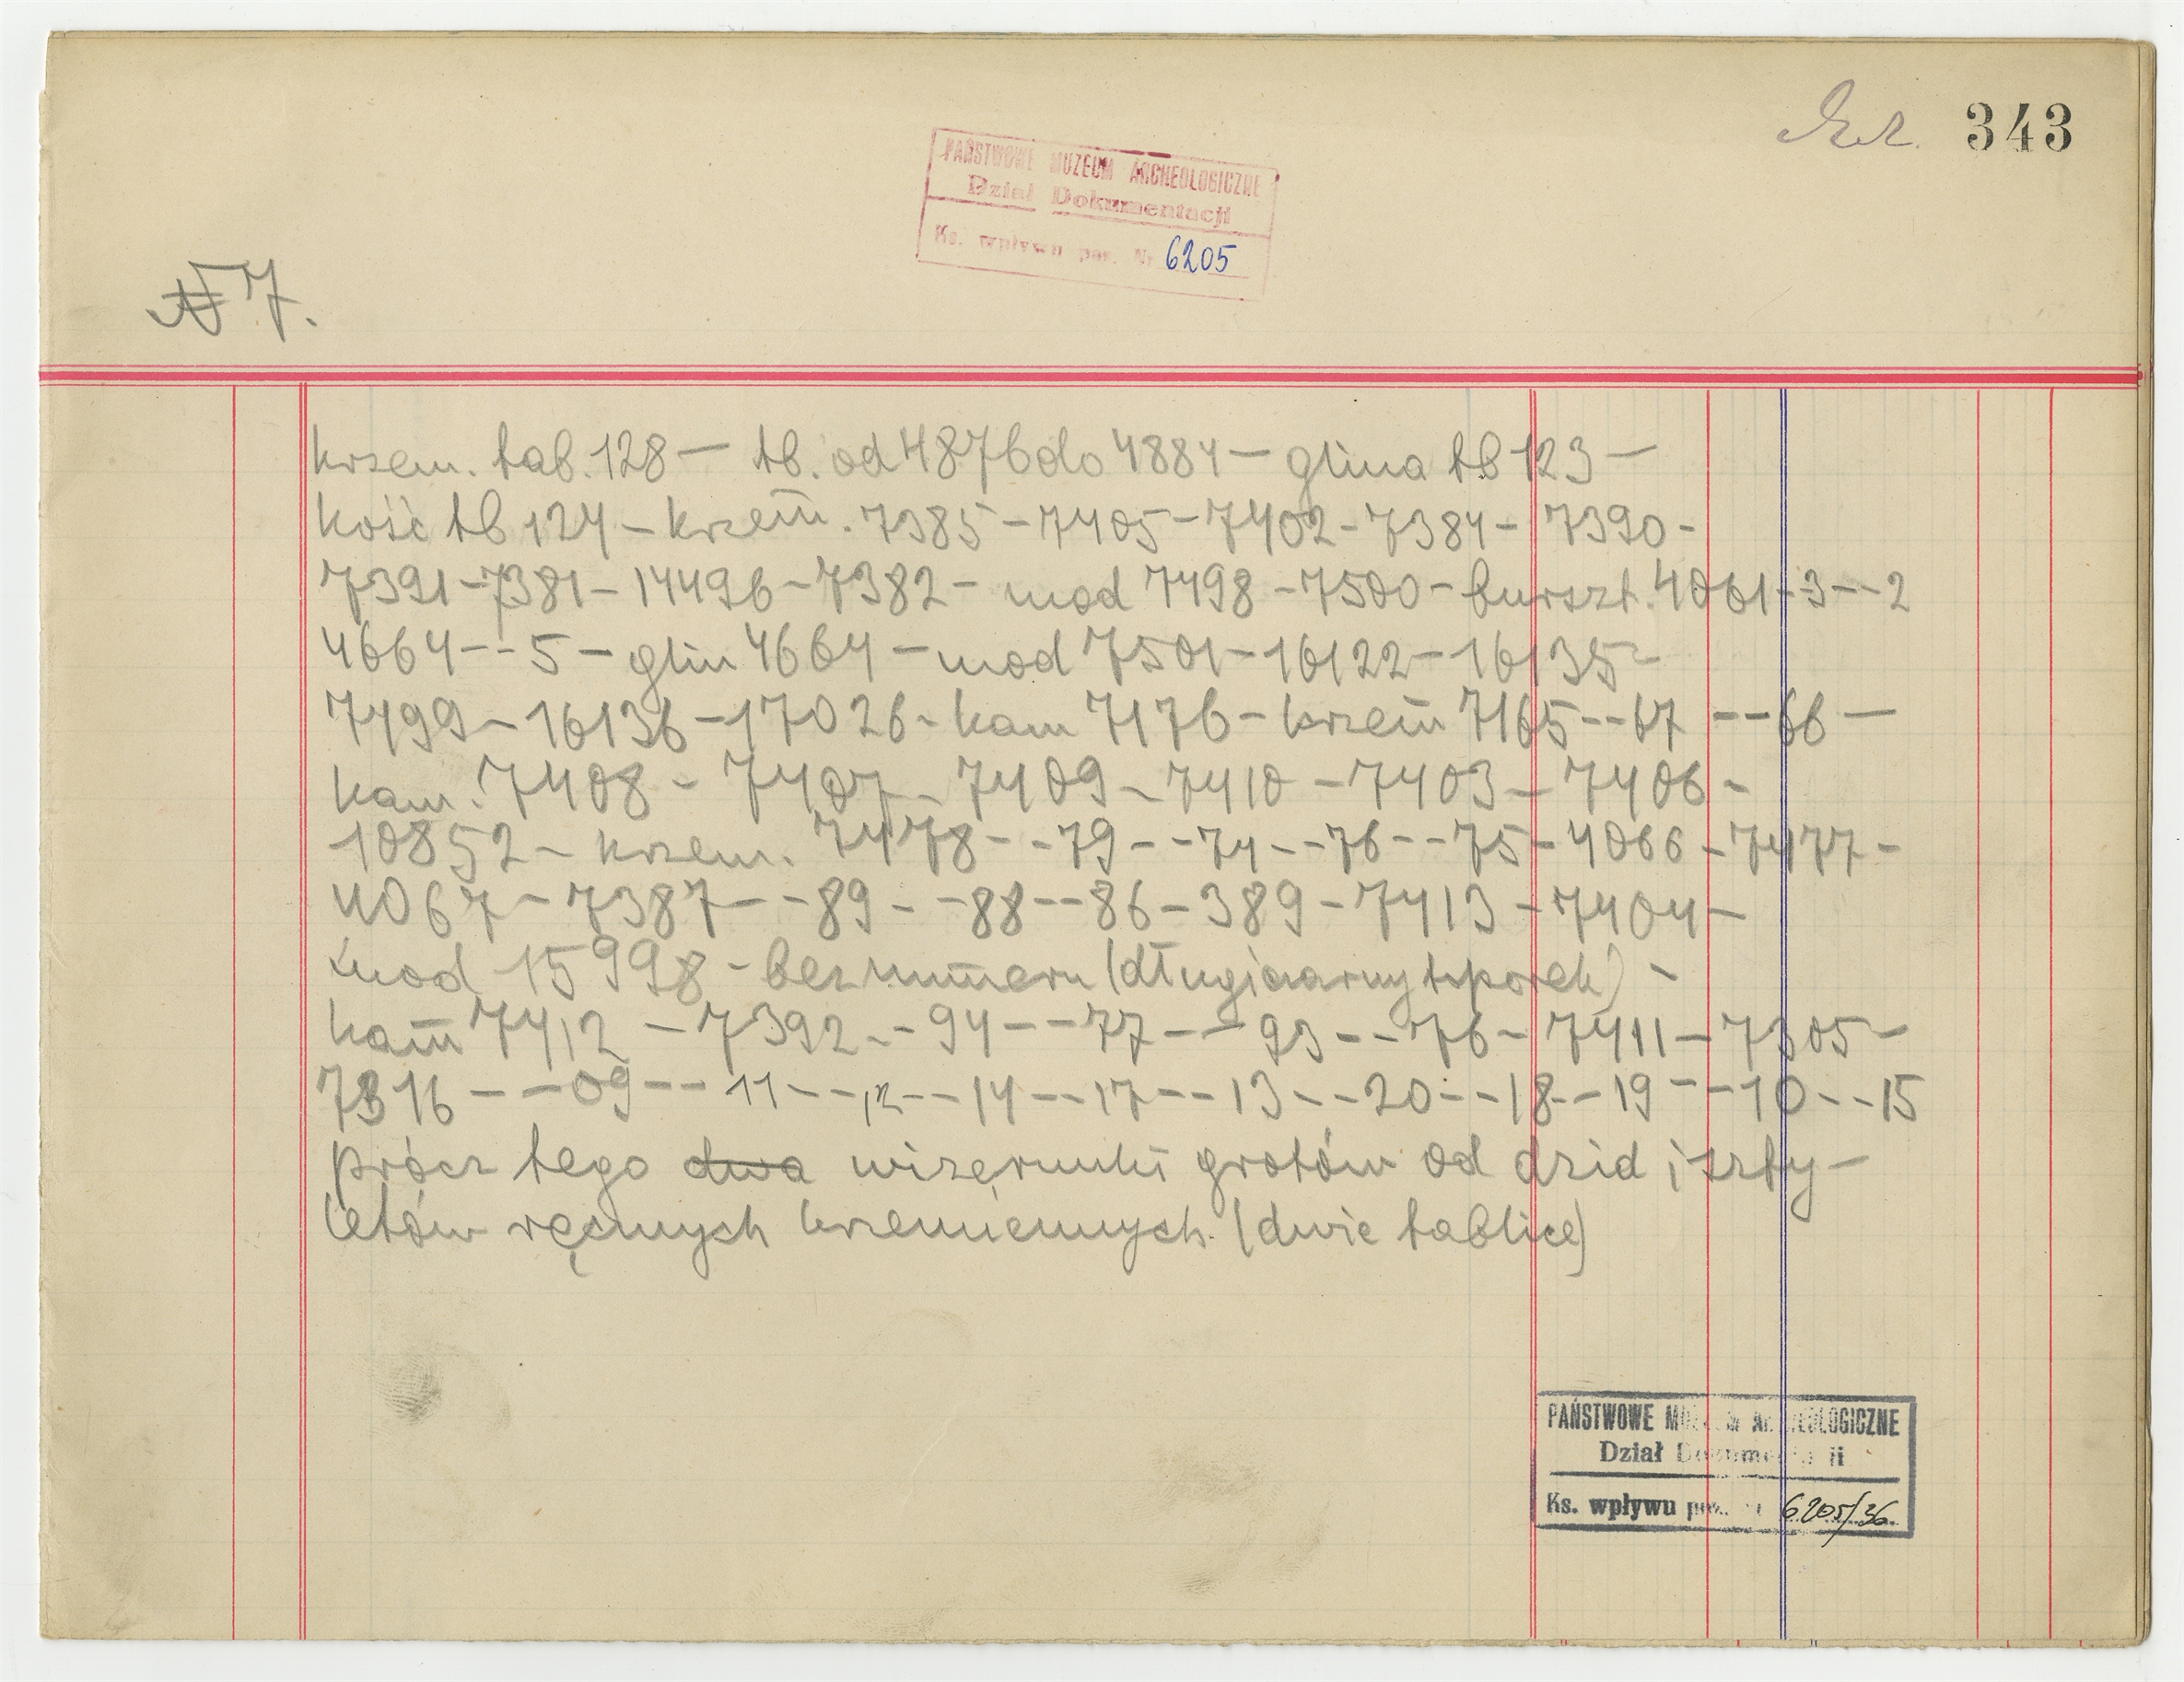 343
PAŃSTWOWE MUZEUM ARCHEOLOGICZNE
Dział Dokumentacji
Ks. wpływu poz. Nr 6205
N 7.
krzem. tab. 128 — tb. od 4876 do 4884 — glina tb 123 —
kość tb 124 — krzem̅. 7385 - 7405 - 7402 - 7384 - 7390 -
7391 - 7381 - 14496 - 7382 - mod 7498 - 7500 - burszt. 4061 - 3 - - 2
4664 - - 5 - glin 4664 - mod 7501 - 16122 - 16135 -
7499 - 16136 - 17026 - kam 7176 - krzem̅ 7165 - - 67 - - 66 —
kam. 7408 - 7407 - 7409 - 7410 - 7403 - 7406 -
10852 - krzem. 7478 - - 79 - - 74 - - 76 - - 75 - 4066 - 7477 -
4067 - 7387 - - 89 - - 88 - - 86 - 389 - 7413 - 7404 -
mod 15998 - bez num̅eru (długi czarny toporek) -
kam̅ 7412 - 7392 - - 94 - - 77 - - 93 - - 76 - 7411 - 7305 -
7316 - - 09 - - 11 - - 12 - - 14 - - 17 - - 13 - - 20 - - 18 - - 19 - - 10 - - 15
prócz tego dwa wizerunki grotów od dzid i szty-
letów ręcznych krzemiennych (dwie tablice)
PAŃSTWOWE MUZEUM ARCHEOLOGICZNE
Dział Dokumentacji
Ks. wpływu poz. Nr 6205/36